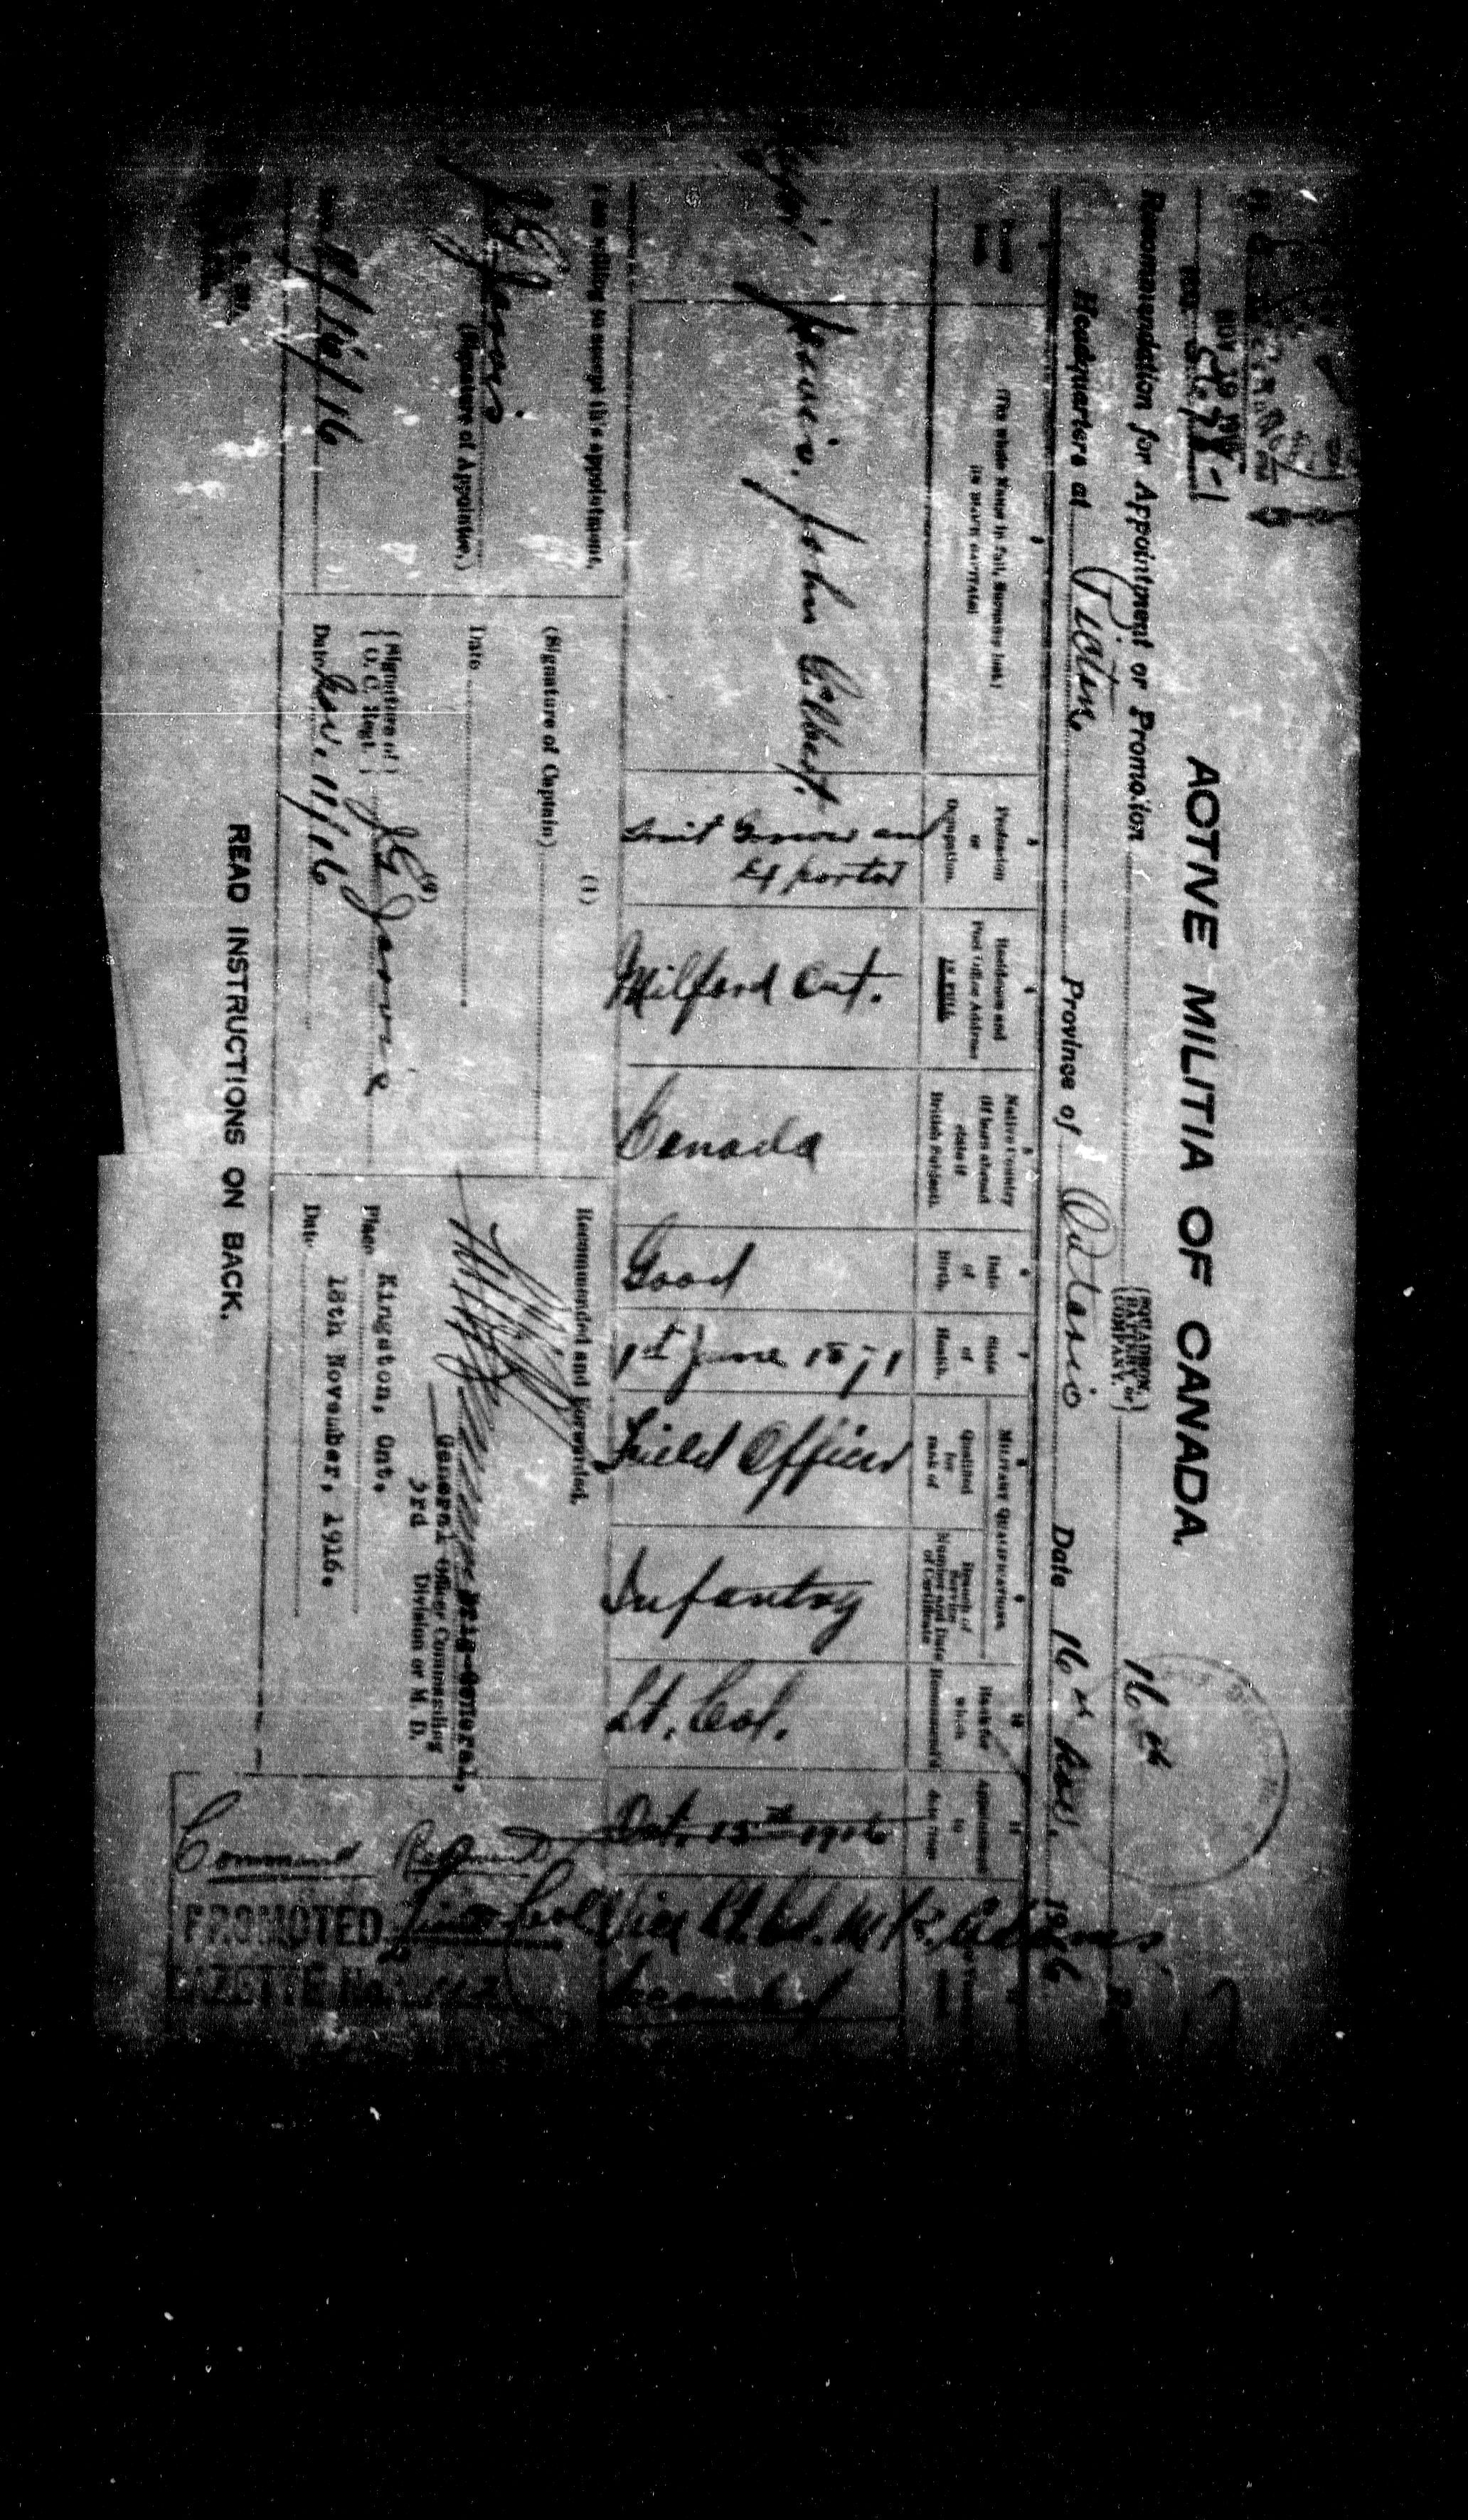 ACTIVE MILITIA OF CANADA.
Recommendation for Appointment or Promotion
{SQUADRON, BATTERY or COMPANY.}
16th
Headquarters at Picton Province of Ontario Date 16th Nov. 1916
The whole Name in full, Surname last
Profession or Occupation.
Residence and Post Office Address IN FULL
Native Country (If born abroad state if British Subject).
Date of Birth.
State of Health.
MILITARY QUALIFICATIONS
Qualified for rank of
Branch of Service Number and Date of Certificate
Rank for which Recommend'd
Appointment to date from
Major. Jarvis, John Gilbert.
Fruit Grower and Exporter
Milford Ont.
Canada
Good
1st June 1871
Field Officer
Infantry
Lt. Col.
Oct. 15th 1916
Vice Lt. Col. Adams,
seconded
I am willing to accept this appointment,
J G Jarvis
(Signature of Appointee.)
/16
(1)
(Signature of Captain)
Date
(2)
{Signature of O. C. Regt.} J G Jarvis
Date Nov. 11/16
Recommended and Forwarded,
Brig-General,
General Officer Commanding
3rd Division or M. D.
Place Kingston, Ont.
Date 18th November, 1916.
Command Regiment
PROMOTED Lieut Col
GAZETTE No.
READ INSTRUCTIONS ON BACK.